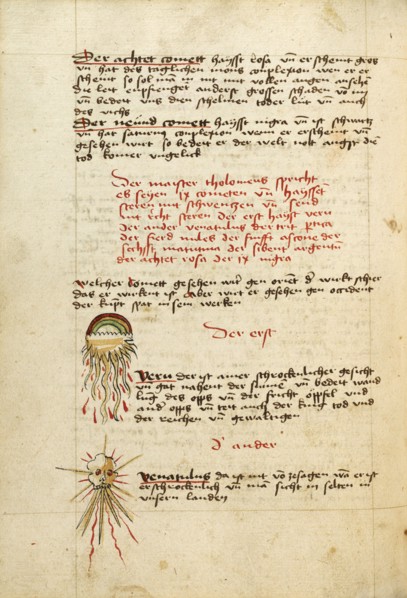 Der achtet comett haysst rosa vn̄ er scheint gros
vn̄ hat des taglichen mons conplexion wen er er
scheint so sol mā in nit mit vollen augen ansehē
die leit enpfienget anderst grossen schaden vō im
vn̄ bedeit vns den schelmen toder leüt vn̄ auch
des vichs
Der neünd comett haysst nigra vn̄ ist schwartz
vn̄ hat saturnus conplexion wenn er erscheint vn̄
gesehen wirt so bedeit er der welt nott angst die
tod komer vngelick
Der maister tholomeus spricht
es seyen ix cometen vn̄ haysset
steren mit schwentzen vn̄ send
nit recht steren der erst hayst veru
der ander venatulus der trit pertica
der fierd miles der funfft ascone der
sechst matutina der sibent argentū
der achtet rosa der ix nigra
Welcher comett gesehen wir gen oriēt d' wirkt schier
das er wirkent ist Aber wirt er gesehen gen occident
der kupt spat in sein werken
Der erst
Veru der ist ainer schrockenlicher gesicht
vn̄ gat nahent der sunne vn̄ bedeit wand
lung des opss vn̄ der frucht opffel vnd
and' opss vn̄ teit auch der kung tod vnd
der reichen vn̄ gewaltigen
d' ander
Venatulus da ist nit vō zesagen wā er ist
erschrockenlich vn̄ mā sicht in selten in
vnsern landen